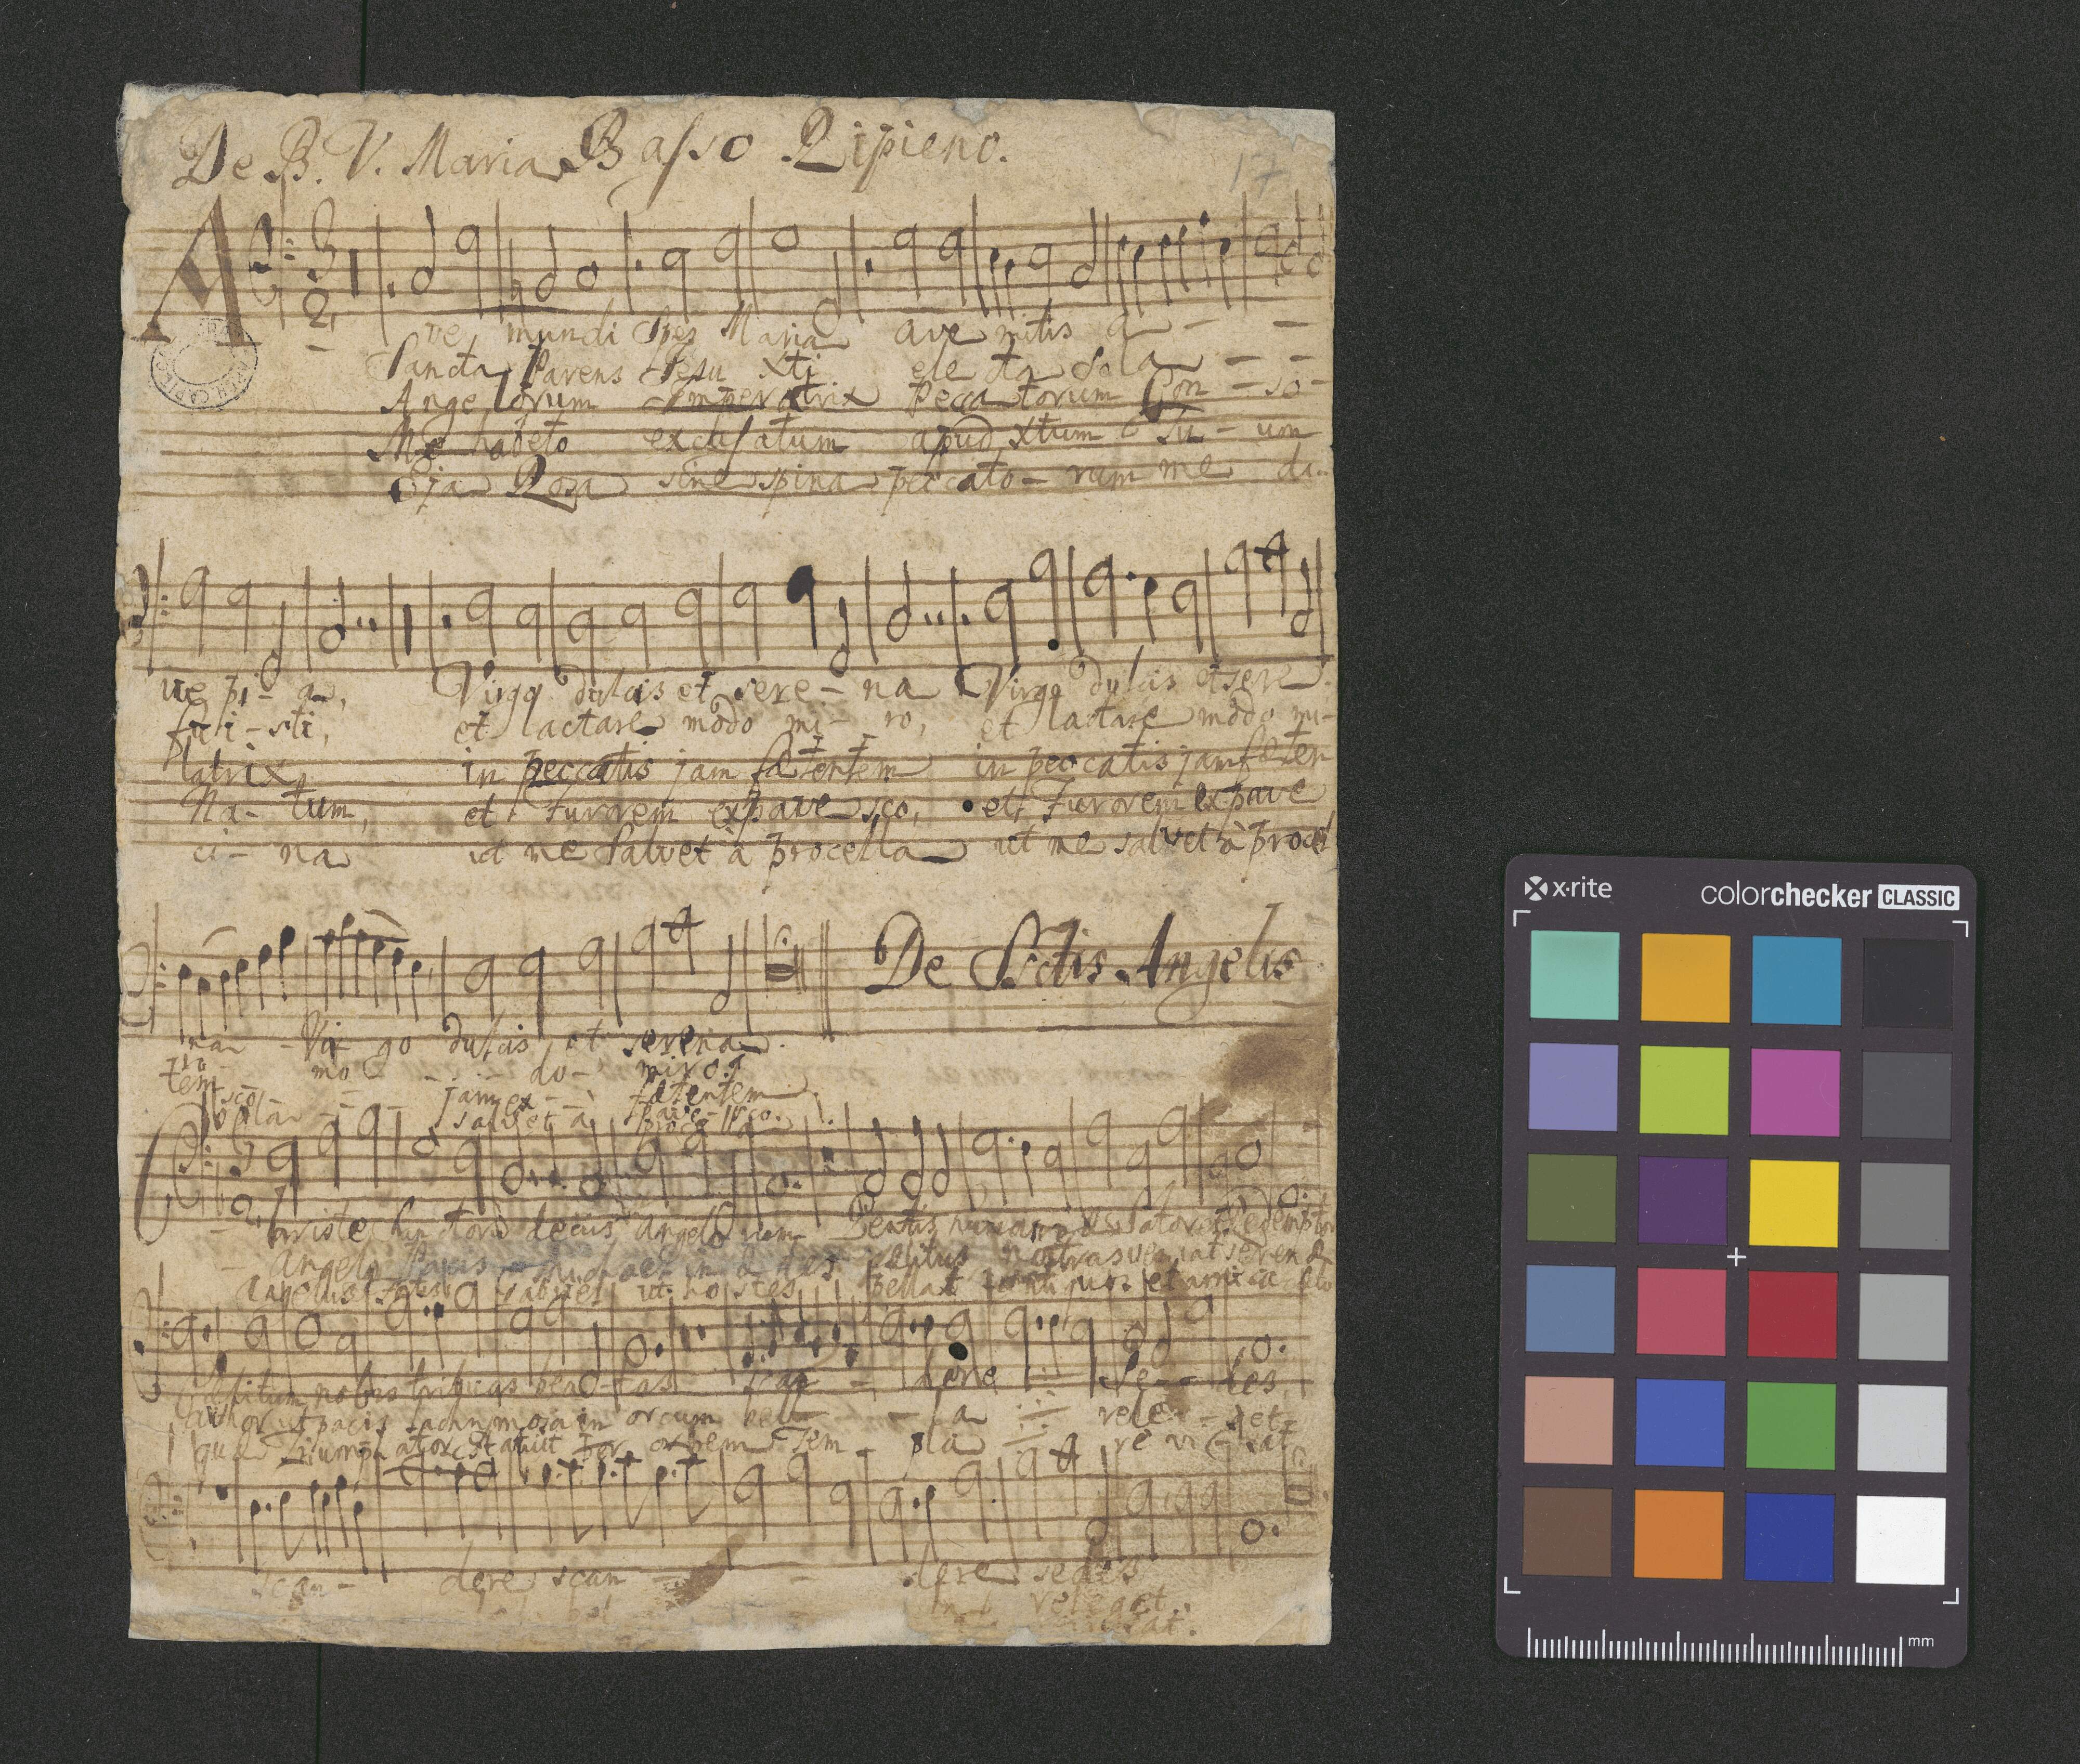 De B. V. Maria Basso Ripieno.
17
A
ve mundi Spes Maria ave mitis a - -
Sancta Parens Jesu Xti electa Sola - -
Angelorum Imperatrix Peccatorum Con - so -
Me habeto excusatum apud Xtum Tu - um
O ja Rosa sine spina peccato - rum me di -
ve pi - a, Virgo dulcis et sere - na Virgo dulcis et sere
fu i - sti, et lactare modo mi - ro, et lactare modo mi -
latrix, in peccatis jam fætentem in peccatis jam fæten
Na - tum, et Furorem expave sco, et Furorem expave
ci - na ut me Salvet à procella ut me salvet à procel
De Sctis Angelis
na - Vir go dulcis et serena.
ro mo - - do - miro.
tem - - jam fætentem
sco - - ex - pave - sco.
la - - salvet à procella
Christe Sanctorum decus Angelorum Gentis humanæ Sator et Redemptor
Angelus Pacis Michael in ædes Cælitus nostras veniat serenæ
Angelus Fortis Gabriel ut hostes pellat antiquos et amica cælo
Cælitum nobis tribuas beatas scan - dere Se - des
author ut pacis lachrymosa in orcum bell - - a rele - get
quæ Triumphator Statuit per orbem Tem - pla re vi - sat
scan - dere scan - - dere sedes
bel releget.
visat.
x·rite
colorchecker CLASSIC
mm